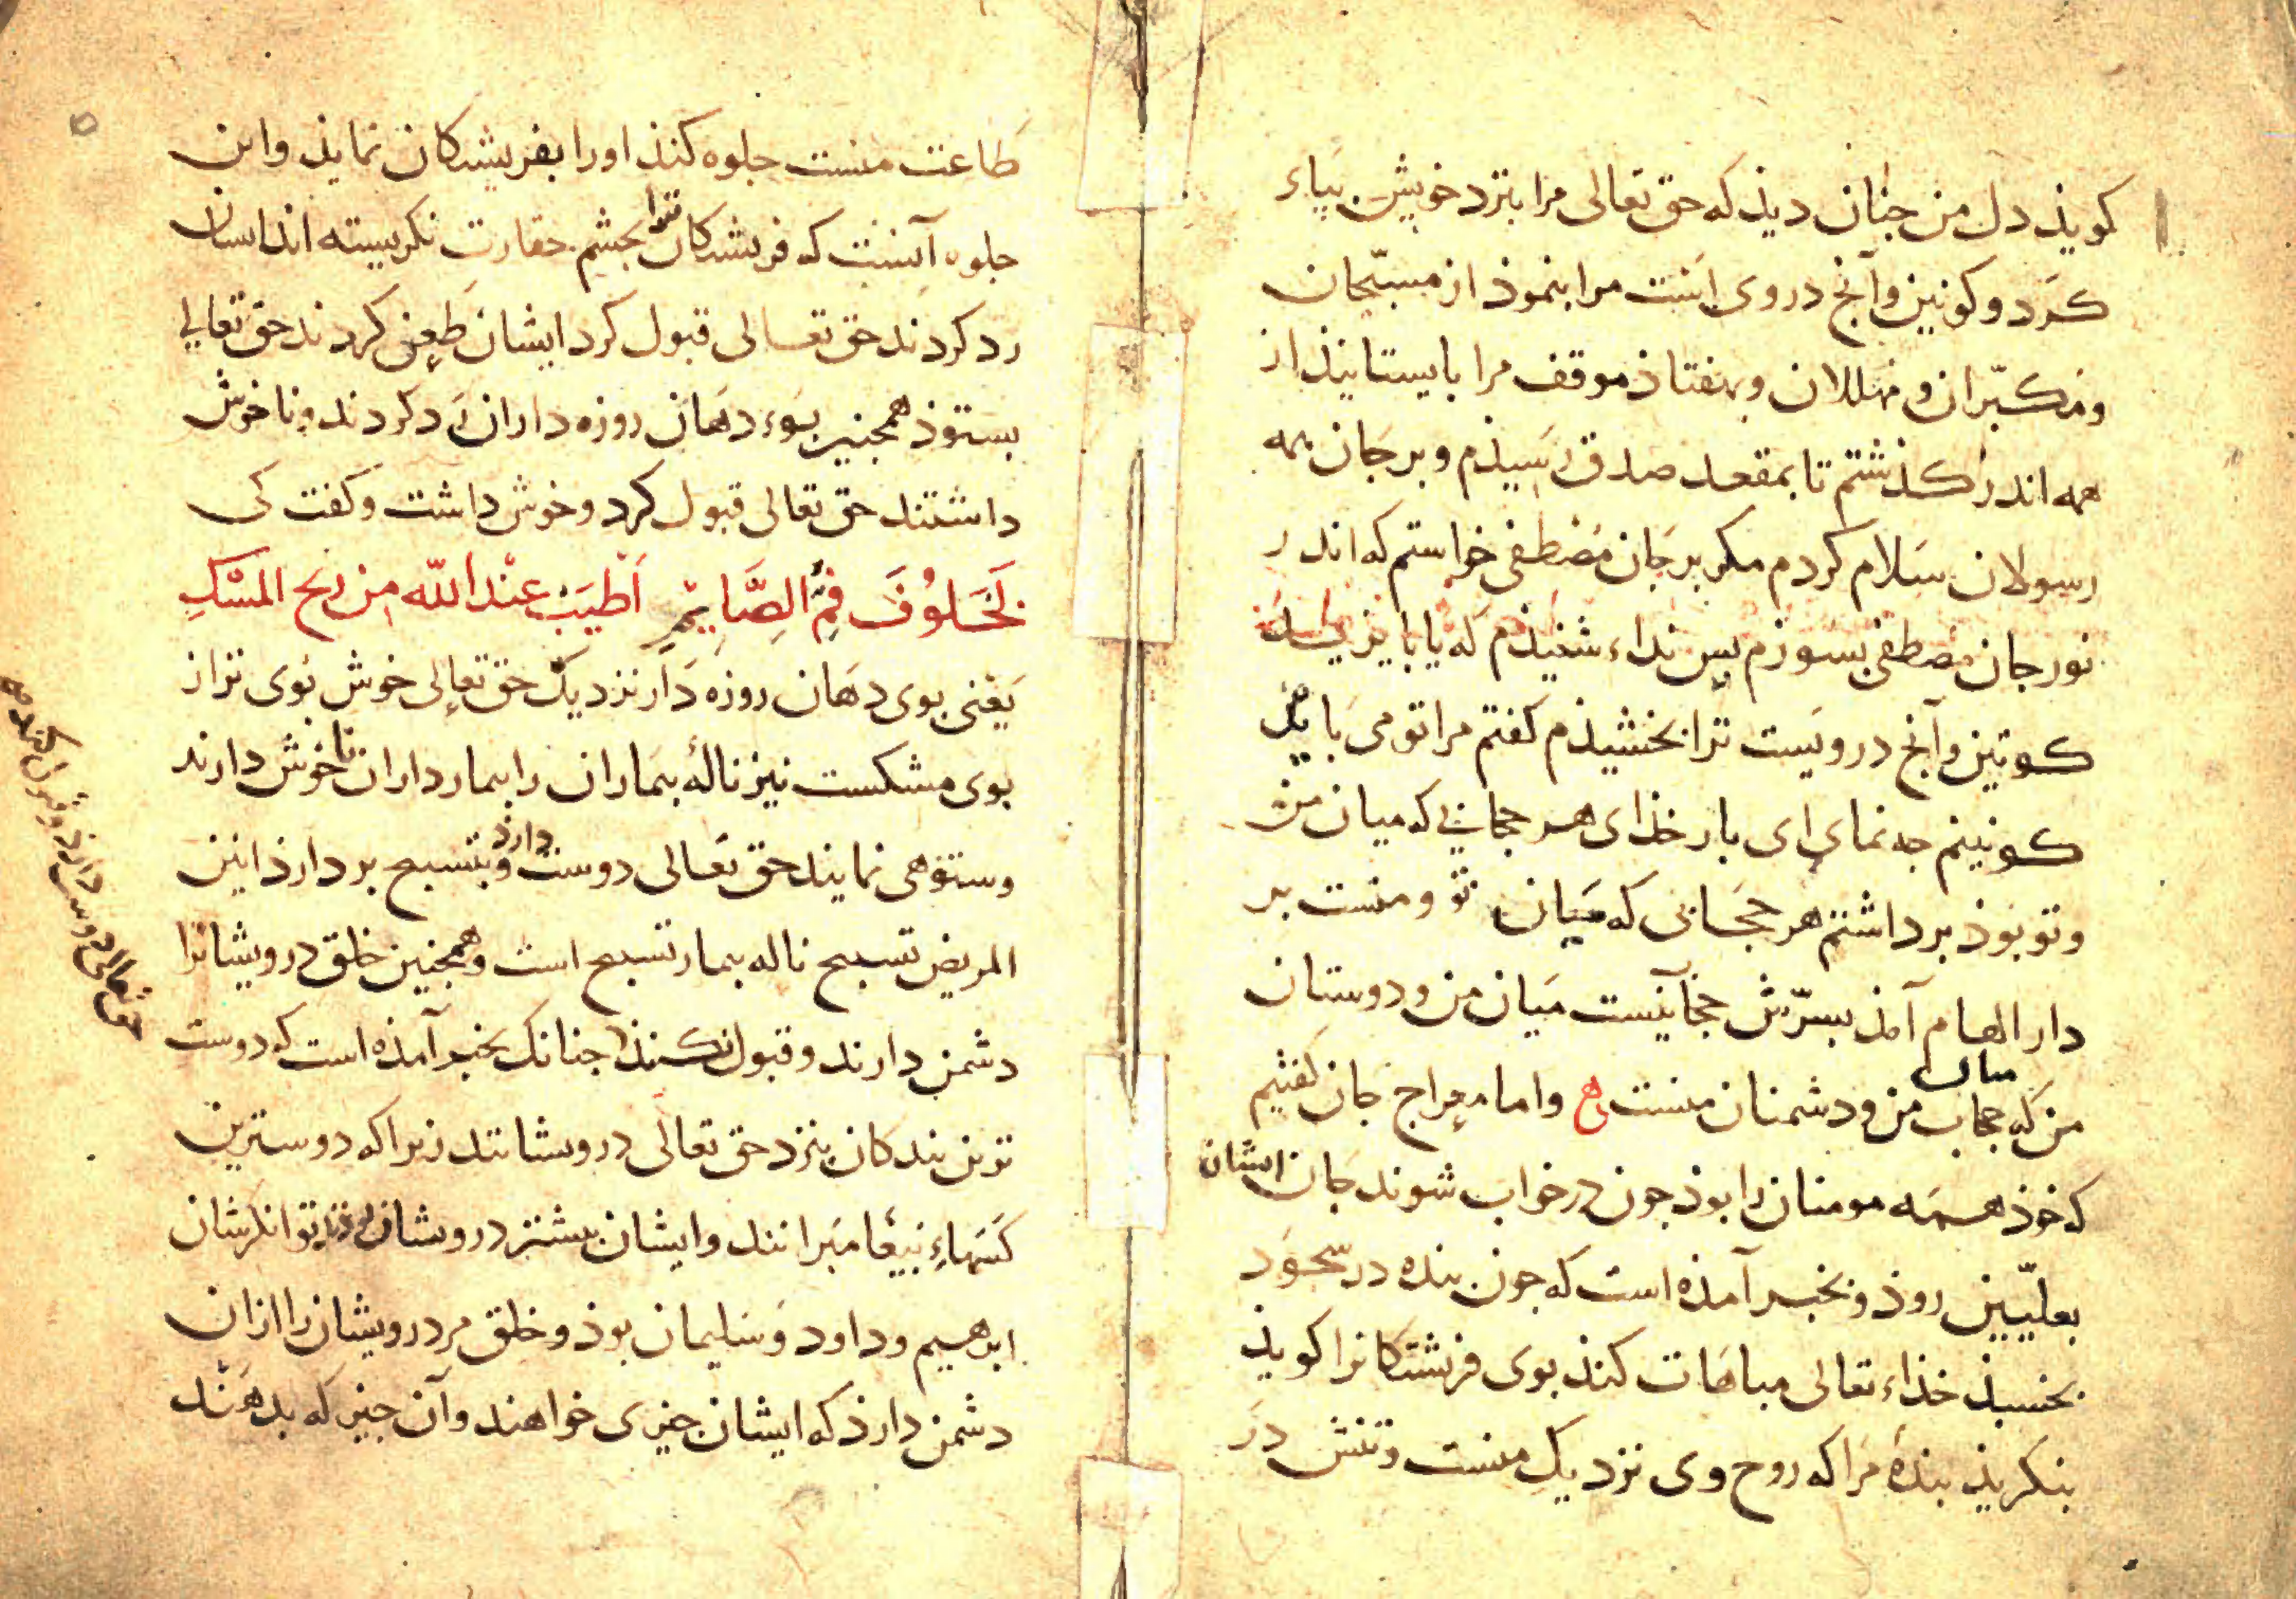 کویذ دل من جنان دیذ که حق تعالی مرا بنزد خویش بپاء
کرد و کونین وآنچ در وی است مرا بنموذ از مسبّحان
و مکبّران و مهللان و بهفتاذ موقف مرا بایستانیذ از
همه اندر کذشتم تا بمقعد صدق رسیذم و بر جان همه
رسولان سلام کردم مکر بر جان مصطفی خواستم که اندر
نور جان مصطفی بسوزم بس نداء شنیذم که یا بایزید
کونین وآنچ درویست ترا بخشیذم کفتم مرا تو می بایذ
کونینم جه نمای ای بار خذای هر حجابی که میان من
و تو بوذ برداشتم هر حجابی که میان تو و منست بر
دار الهام آمذ بسرّش حجابیست میان من و دوستان
من که حجاب میان من و دشمنان منست ه واما معراج جان کفتیم
که خوذ همه مومنان را بوذ جون در خواب شوند جان ایشان
بعلیّین روذ و بخبر آمذه است که جون بنده در سجود
بخسبذ خذاء تعالی مباهات کنذ بوی فرشتکانرا کویذ
بنکریذ بنده مرا که روح وی نزدیک منست و تنش در
طاعت منست جلوه کنذ او را بفریشتکان نمایذ و این
جلوه آنست که فریشتکان ترا بجشم حقارت نکریسته اند ایشان
رد کردند حق تعالی قبول کرد ایشان طعن کردند حق تعالی
بستوذ همجنین بوء دهان روزه داران رد کردند و ناخوش
داشتند حق تعالی قبول کرد و خوش داشت و کفت کی
لَخَلُوفَ فَمِ الصَّایِمِ اَطْیَبَ عِنْدَ اللّه مِن ریح المسْکِ
یعنی بوی دهان روزه دار نزدیک حق تعالی خوش بوی تر از
بوی مشکست نیز نالهٔ بیماران را بیمار داران ناخوش دارند
و ستوهی نمایند حق تعالی دوست دارذ و بتسبیح بر دارذ انین
المریض تسبیح ناله بیمار تسبیح است و همجنین خلق درویشانرا
دشمن دارند و قبول نکنند جنانک بخبر آمذه است که دوست
ترین بندکان بنزد حق تعالی درویشانند زیرا که دوسترین
کسهاء بیغامبرانند و ایشان بیشتر درویشان بوذند توانکرشان
ابرهیم و داود و سلیمان بوذ و خلق مر درویشان را ازان
دشمن دارذ که ایشان جیزی خواهند وآن جیز که بدهند
حق تعالی دوست دارذ